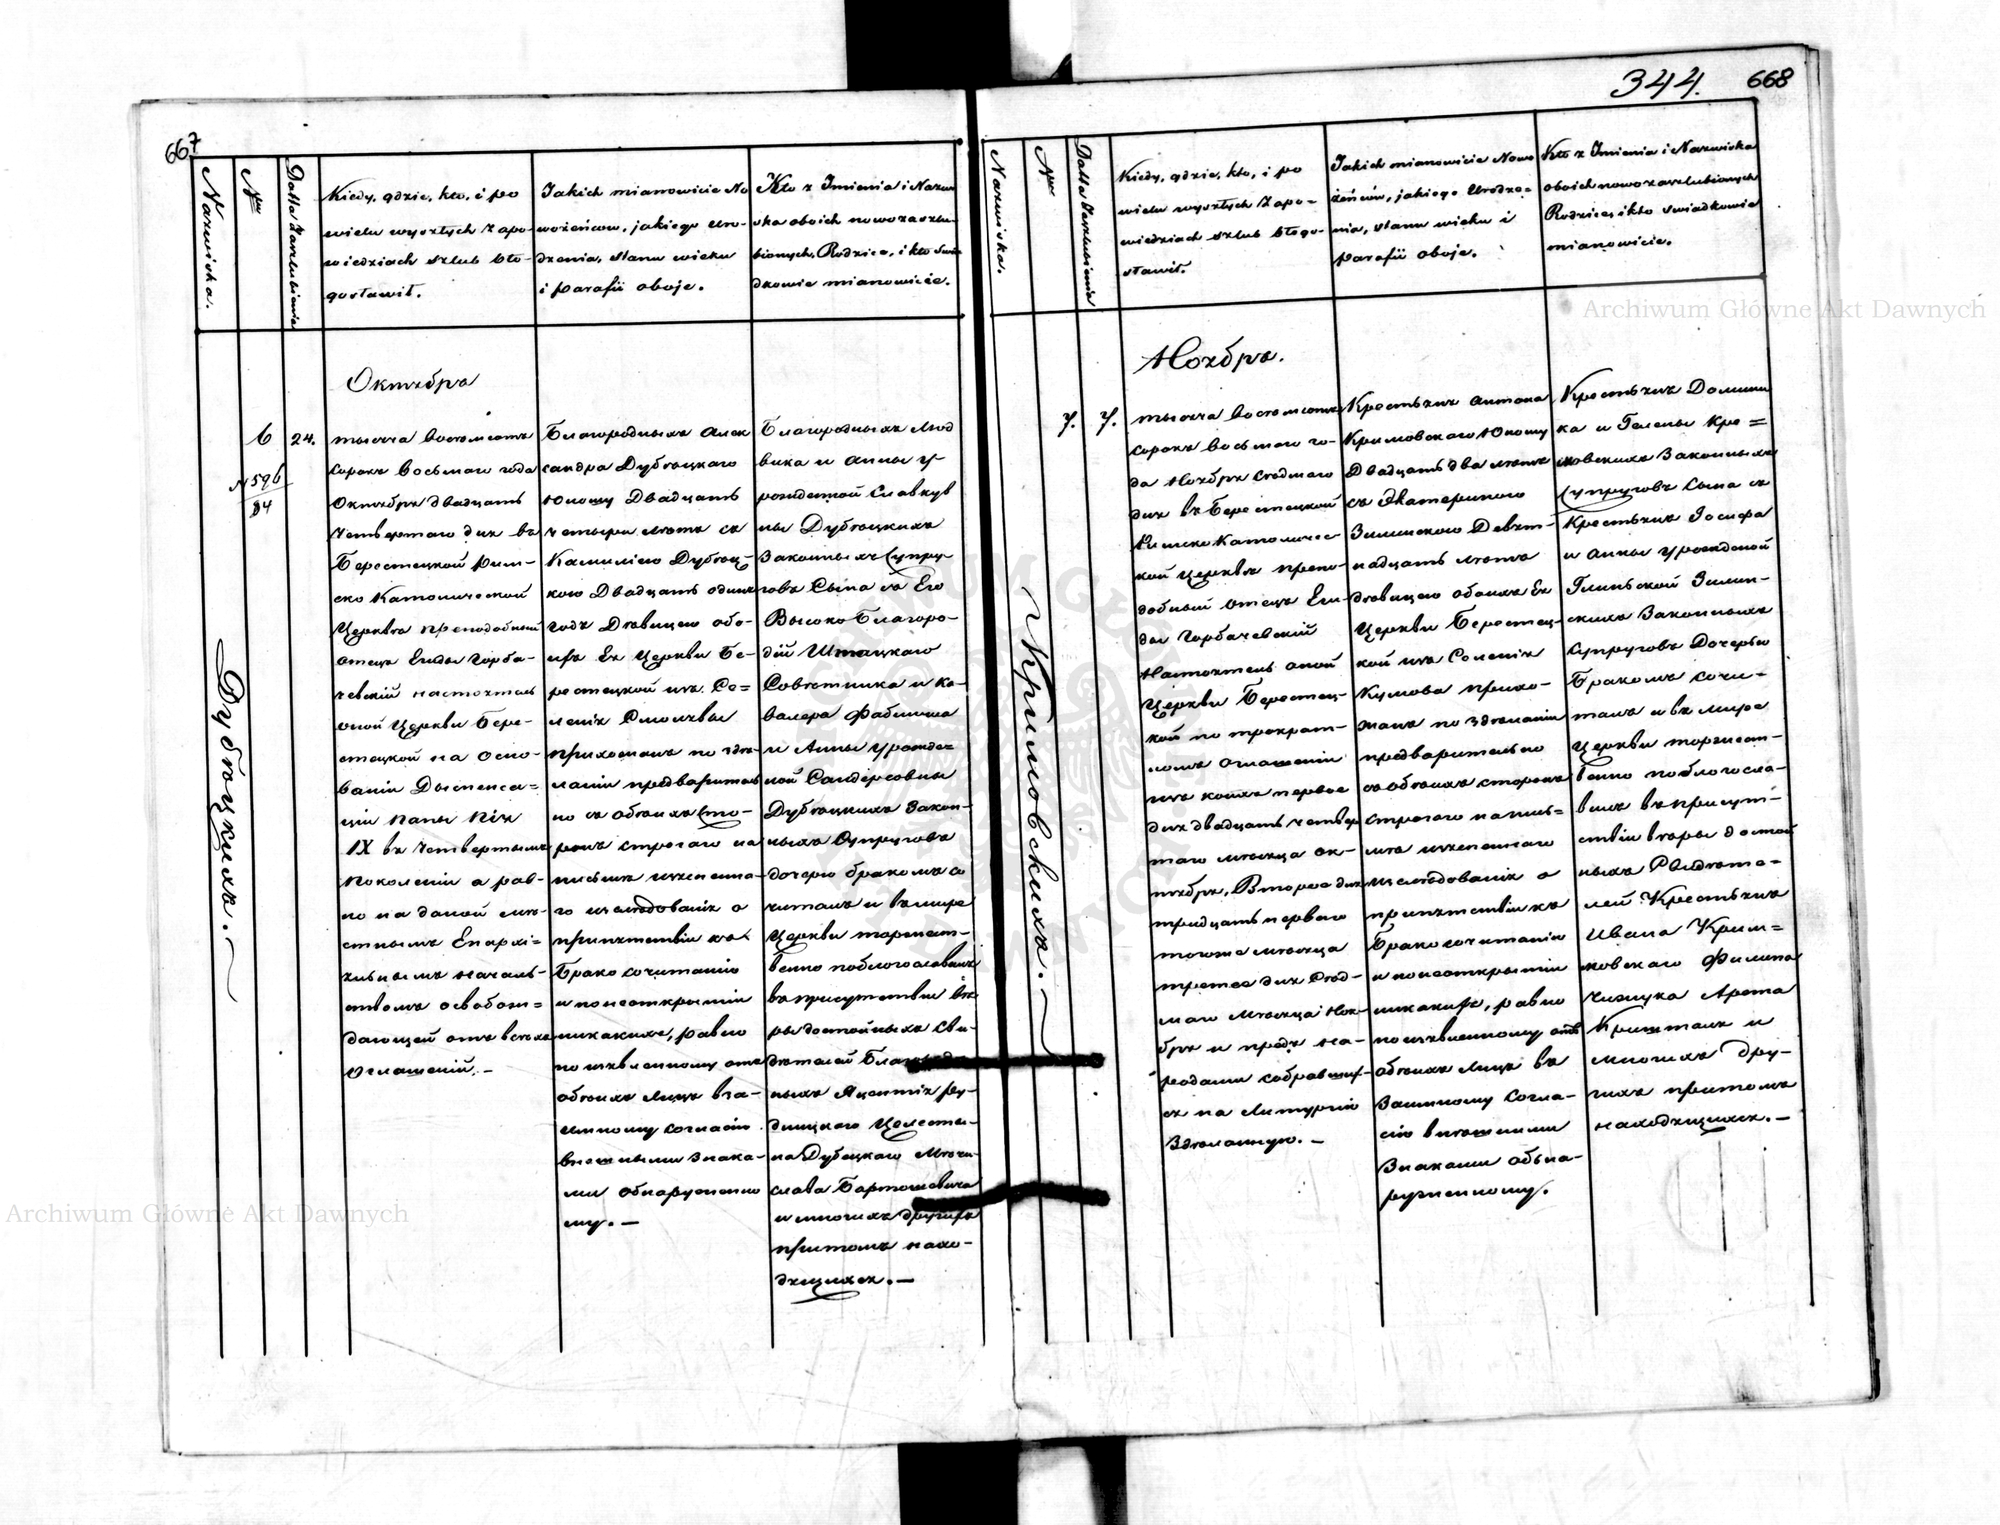 667
Nazwiska.
Nro
Datta Zaszlubienia
Kiedy, gdzie, kto, i po
wielu wyszłych zapo-
wiedziach szlub bło-
gosławił.
Jakich mianowicie No
wożeńców, jakiego uro-
dzenia, stanu wieku
i parafii oboje.
Kto z Imienia i Nazwi
ska oboich nowozaszlu-
bionych, Rodzice, i kto Świa
dkowie mianowicie.
Дубѣцкихъ.
6
N 596
24.
Октября
тысяча восемсотъ
сорокъ восьмаго года
Октября двадцать
четвертаго дня въ
Берестецкой Рим-
ско Католической
Церквѣ преподобный
отецъ Егидъ Горба-
чевскій настоятель
оной Церкви Бере-
стецкой на осно-
ваніи Диспенса-
ціи Папы Пія
IX въ четвертомъ
поколеніи а рав-
но на даной мѣ-
стнымъ Епархі-
яльнымъ началь-
ствомъ освобож-
дающей отъ всехъ
оглашеній. -
Благородныхъ Алек
сандра Дубѣцкаго
Юношу двадцать
четыри лѣтъ съ
Камиліею Дубѣц-
кою двадцать одинъ
годъ Дѣвицею обо-
ихъ Ея Церкви Бе-
рестецкой изъ Се-
ленія Смолявы
прихожанъ по здѣ-
ланіи предваритель
но съ обоихъ сто-
ронъ строгаго на
письмѣ учиненна-
го изследованія о
препятствіи къ
Бракосочитанію
и понеоткрытіи
никакихъ, равно
по изъявленному отъ
обоихъ лицъ вза-
имному согласію
внешными знака-
ми обнаруженно
му. -
Благородныхъ Люд
вика и Анны у-
рожденной Славкув
ны Дубѣцкихъ
Законныхъ Супру-
говъ Сына съ Его
Высоко Благоро-
дій Штацкаго
Совѣтника и Ка-
валера Фабияна
и Анны урожден
ной Сандерсовны
Дубѣцкихъ Закон-
ныхъ Супруговъ
дочерю бракомъ со
читалъ и въ мире
Церкви торжест-
венно поблогославилъ
въ присутствіи вѣ-
ры достойныхъ Сви-
дѣтелей Благород
ныхъ Яцентія Ру-
дницкаго Целести-
на Дубецкаго Мѣчи-
слава Бартошевича
и многихъ другихъ
притомъ нахо-
дящихся. -
344.
668
Nazwiska.
Nro
Datta Zaszlubienia
Kiedy, gdzie, kto, i po
wielu wyszłych zapo-
wiedziach szlub błogo-
sławił.
Jakich mianowicie Nowo
żeńców, jakiego urodze-
nia, stanu wieku i
parafii oboje.
Kto z Imienia i Nazwiska
oboich nowozaszlubionych
Rodzice, i kto świadkowie
mianowicie.
Кримовскихъ.
7.
7.
Ноября.
тысяча восемсотъ
сорокъ восьмаго го-
да Ноября седмаго
дня въ Берестецкой
Римско Католичес
кой Церквѣ препо-
добный отецъ Еги-
дъ Горбачевскій
Настоятель оной
Церкви Берестец-
кой по трекрат-
номъ оглашеніи
изъ коихъ первое
дня двадцать четвер
таго мѣсяца ок-
тября, Второе дня
тридцать перваго
тогоже мѣсяца
третее дня Сед-
маго мѣсяца Ноя-
бря и предъ на-
родами собравших-
ся на Литургію
Здѣланную. -
Крестьянъ Антона
Кримовскаго Юношу
Двадцать два лѣтъ
съ Екатериною
Зилинскою Девят-
надцать лѣтъ
дѣвицею обоихъ Ея
Церкви Берестец-
кой изъ Селенія
Кумова прихо-
жанъ по здѣланіи
предварительно
съ обоихъ сторонъ
строгаго на пись-
мѣ учиненнаго
изследованія о
препятствіи къ
Бракосочитанію
и понеоткрытіи
никакихъ, равно
по изъявленному отъ
обоихъ лицъ вѣ
Заимному согла-
сію внешними
Знаками обна-
руженному.
Крестьянъ Домини
ка и Гелены Кри-
мовскихъ Законныхъ
Супруговъ Сына съ
Крестьянъ Іосифа
и Анны урожденой
Глинской Зилин-
скихъ Законныхъ
Супруговъ Дочерью
Бракомъ сочи-
талъ и въ мире
Церкви торжест-
венно поблогосла-
вилъ въ присутс-
твіи вѣры достой
ныхъ Свидѣте-
лей Крестьянъ
Ивана Крим-
мовскаго Филипа
Арета
и
многихъ дру-
гихъ притомъ
находящихся. -
Archiwum Główne Akt Dawnych
Archiwum Główne Akt Dawnych